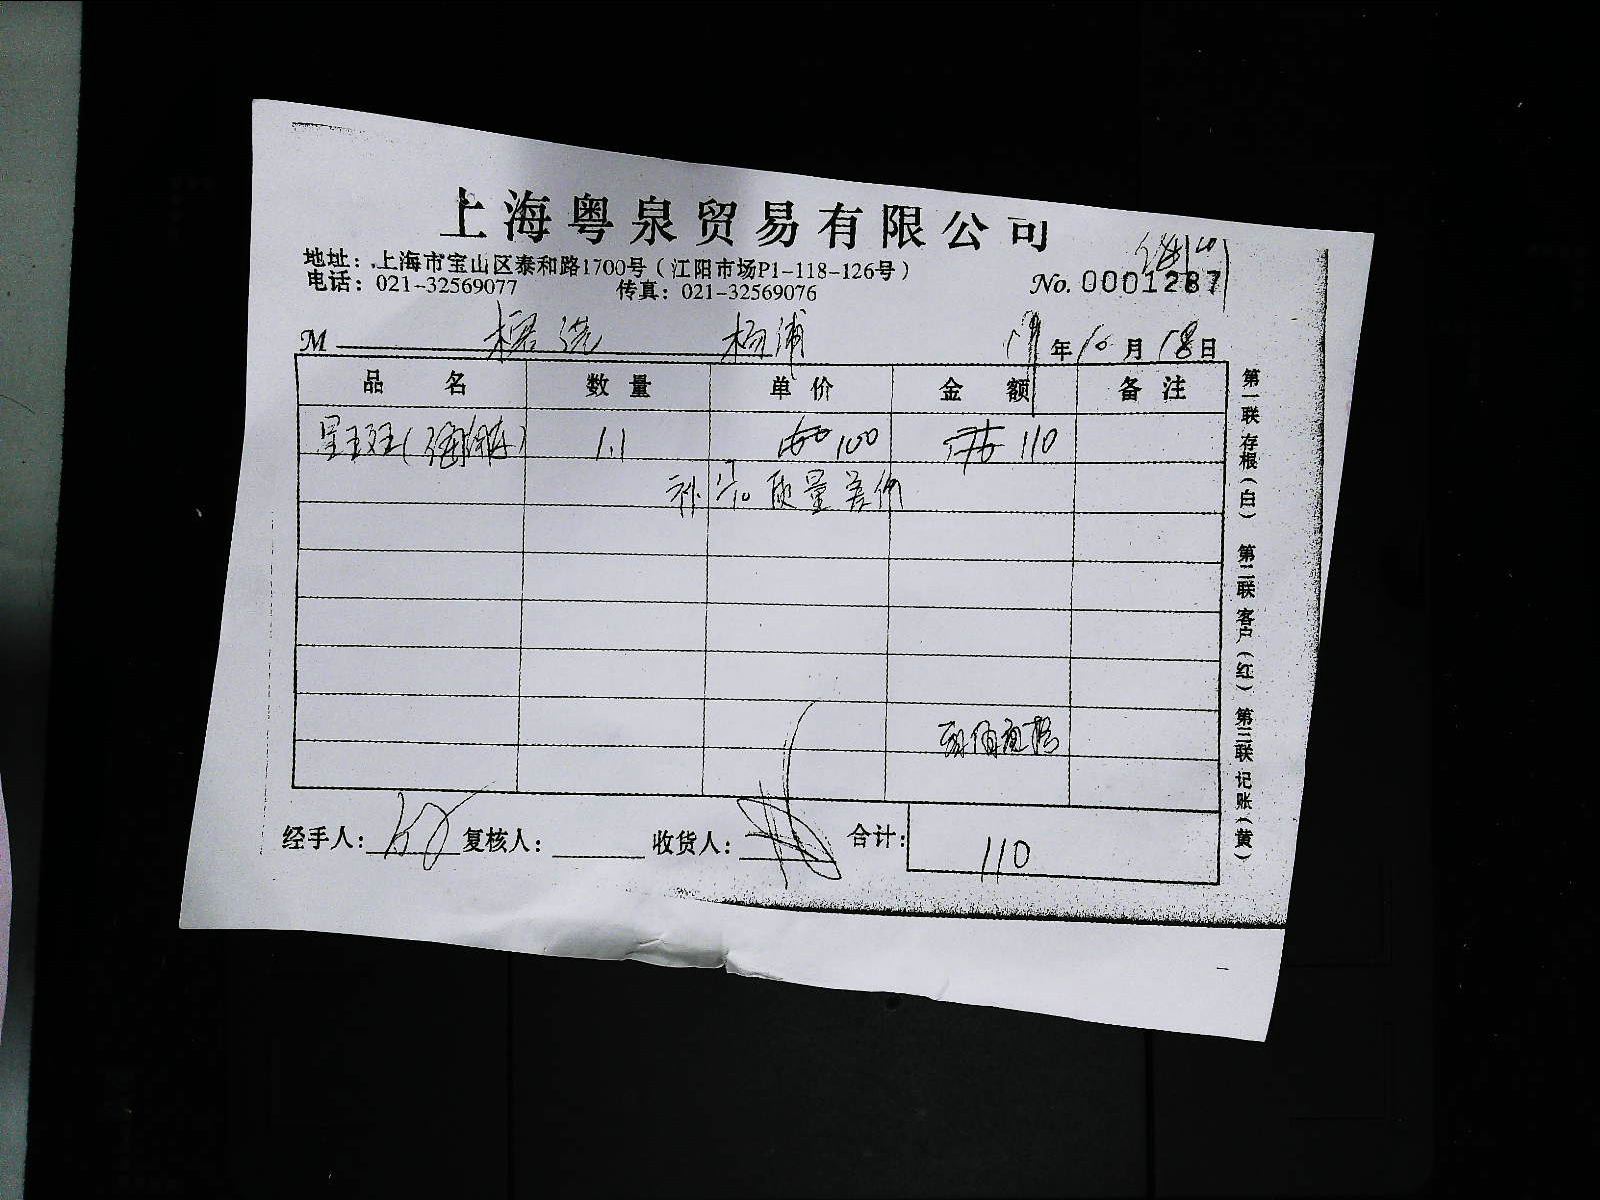 上海粤泉贸易有限公司
地址：上海市宝山区泰和路1700号（江阳市场P1-118-126号）
电话：021-32569077 传真：021-32569076 No. 0001287
M 杨浦 年10月18日
品名 数量 单价 金额 备注
星王斑( 1.1 100 110
补 质量差价
经手人： 复核人： 收货人： 合计： 110
第一联 存根（白） 第二联 客户（红） 第三联 记账（黄）